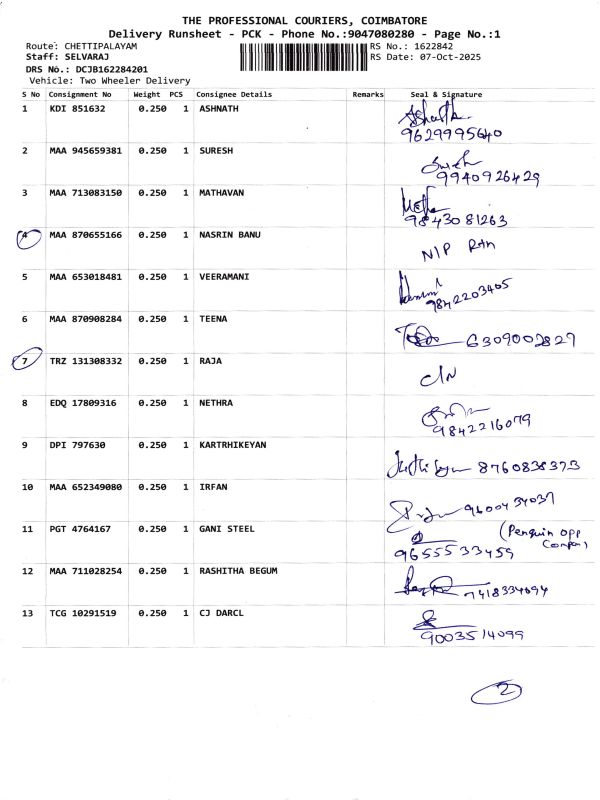 THE PROFESSIONAL COURIERS, COIMBATORE
Delivery Runsheet - PCK - Phone No.:9047080280 - Page No.:1
Route: CHETTIPALAYAM RS No.: 1622842
Staff: SELVARAJ RS Date: 07-Oct-2025
DRS No.: DCJB162284201
Vehicle: Two Wheeler Delivery
S No Consignment No Weight PCS Consignee Details Remarks Seal & Signature
1 KDI 851632 0.250 1 ASHNATH
9629995640
2 MAA 945659381 0.250 1 SURESH
9940926429
3 MAA 713083150 0.250 1 MATHAVAN
9843081263
4 MAA 870655166 0.250 1 NASRIN BANU
N/P Rtn
5 MAA 653018481 0.250 1 VEERAMANI
9842203405
6 MAA 870908284 0.250 1 TEENA
6309002829
7 TRZ 131308332 0.250 1 RAJA
C/N
8 EDQ 17809316 0.250 1 NETHRA
9842216079
9 DPI 797630 0.250 1 KARTRHIKEYAN
8760838373
10 MAA 652349080 0.250 1 IRFAN
9600434037
11 PGT 4764167 0.250 1 GANI STEEL
(Penguin opp
Company)
9655533459
12 MAA 711028254 0.250 1 RASHITHA BEGUM
7418334694
13 TCG 10291519 0.250 1 CJ DARCL
9003514099
2